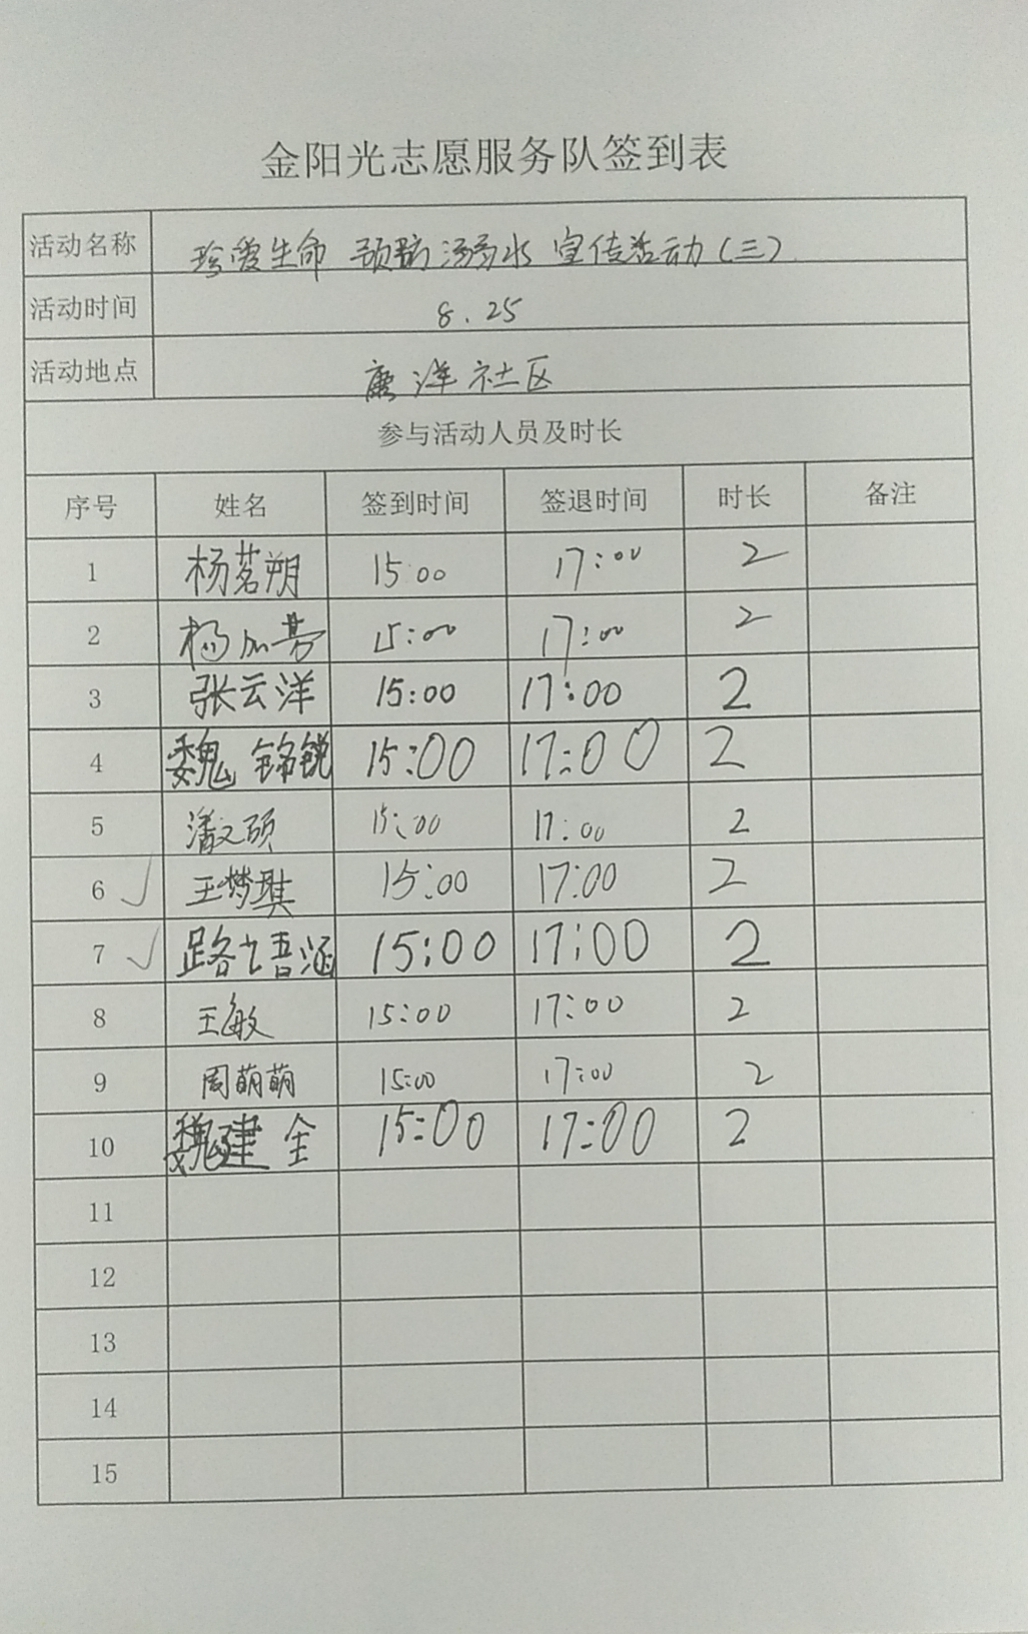 金阳光志愿服务队签到表
活动名称 珍爱生命 预防溺水 宣传活动(三)
活动时间 8.25
活动地点 唐洋社区
参与活动人员及时长
序号 姓名 签到时间 签退时间 时长 备注
1 杨茗朔 15:00 17:00 2
2 15:00 17:00 2
3 张云洋 15:00 17:00 2
4 魏铭锐 15:00 17:00 2
5 潘文硕 15:00 17:00 2
6 王梦琪 15:00 17:00 2
7 15:00 17:00 2
8 王敏 15:00 17:00 2
9 周萌萌 15:00 17:00 2
10 魏建全 15:00 17:00 2
11
12
13
14
15